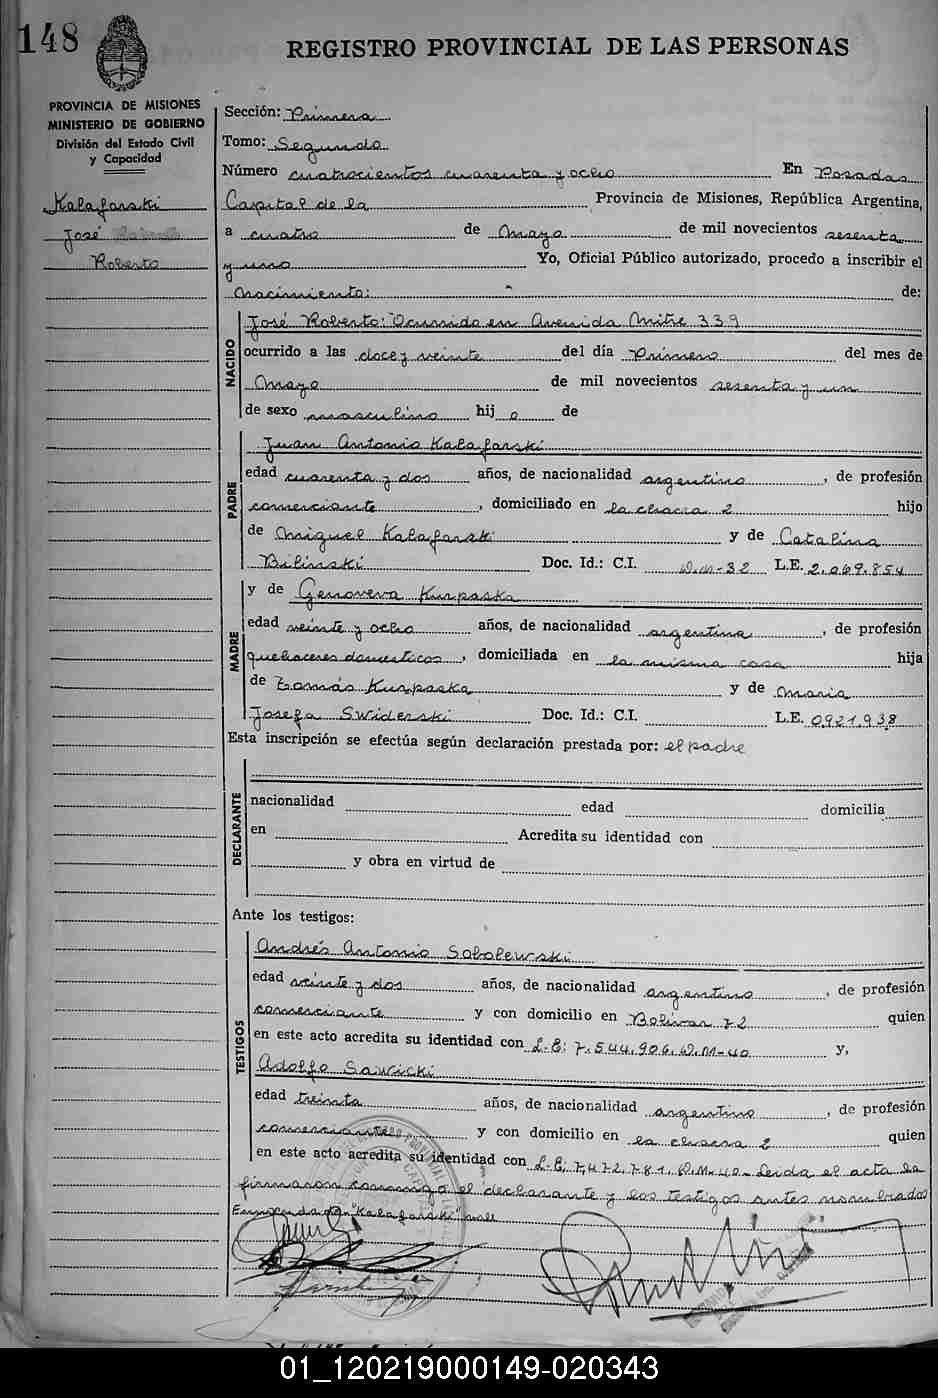 148
REGISTRO PROVINCIAL DE LAS PERSONAS
PROVINCIA DE MISIONES
MINISTERIO DE GOBIERNO
División del Estado Civil
y Capacidad
Kalafarski
José
Roberto
Sección: Primera
Tomo: Segundo
Número cuatrocientos cuarenta y ocho En Posadas
Capital de la Provincia de Misiones, República Argentina,
a cuatro de Mayo de mil novecientos sesenta
y uno Yo, Oficial Público autorizado, procedo a inscribir el
nacimiento: de:
NACIDO
José Roberto: Ocurrido en Avenida Mitre 339
ocurrido a las doce y veinte del día Primero del mes de
Mayo de mil novecientos sesenta y un
de sexo masculino hij o de
PADRE
Juan Antonio Kalafarski
edad cuarenta y dos años, de nacionalidad argentino, de profesión
comerciante, domiciliado en la chacra 2 hijo
de Miguel Kalafarski y de Catalina
Bilinski Doc. Id.: C.I. D.M-32 L.E. 2.069.854
MADRE
y de Genoveva Kurpaska
edad veinte y ocho años, de nacionalidad argentina, de profesión
quehaceres domesticos, domiciliada en la misma casa hija
de Tomás Kurpaska y de Maria
Josefa Swiderski Doc. Id.: C.I. L.E. 0921.938
Esta inscripción se efectúa según declaración prestada por: el padre
DECLARANTE
nacionalidad edad domicilia
en Acredita su identidad con
y obra en virtud de
Ante los testigos:
TESTIGOS
Andrés Antonio Sobolewski
edad veinte y dos años, de nacionalidad argentino, de profesión
comerciante y con domicilio en Bolivar 72 quien
en este acto acredita su identidad con L.E: 7.544.906. D.M-40 y,
Adolfo Sawicki
edad treinta años, de nacionalidad argentino, de profesión
comerciante y con domicilio en la chacra 2 quien
en este acto acredita su identidad con L.E. 7.472.781. D.M-40- Leida el acta la
firmaron conmigo el declarante y los testigos antes nombrados
Enmendado "Kalafarski" vale
01_120219000149-020343